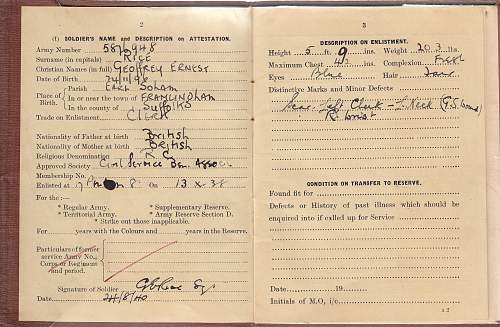 2
(I) SOLDIER'S NAME and DESCRIPTION on ATTESTATION.
Army Number
Surname (in capitals) RICE
Christian Names (in full) GEOFFREY ERNEST
Date of Birth 24/11/98
Place of Birth.
Parish EARL SOHAM
In or near the town of FRAMLINGHAM
In the county of SUFFOLK
Trade on Enlistment CLERK
Nationality of Father at birth British
Nationality of Mother at birth British
Religious Denomination
Approved Society Civil Service
Membership No.
Enlisted at On 13 X 38
For the :—
* Regular Army. * Supplementary Reserve.
* Territorial Army. * Army Reserve Section D.
* Strike out those inapplicable.
For years with the Colours and years in the Reserve.
Particulars of former service Army No., Corps or Regiment and period.
Signature of Soldier
Date 24/8/40
3
DESCRIPTION ON ENLISTMENT.
Height 5 ft. 9 ins. Weight 203 lbs.
Maximum Chest 42 ins. Complexion Fresh
Eyes Blue Hair
Distinctive Marks and Minor Defects
Scar. Left Neck (G.S. wound)
R. Wrist
CONDITION ON TRANSFER TO RESERVE.
Found fit for
Defects or History of past illness which should be
enquired into if called up for Service
Date 19
Initials of M.O. i/c